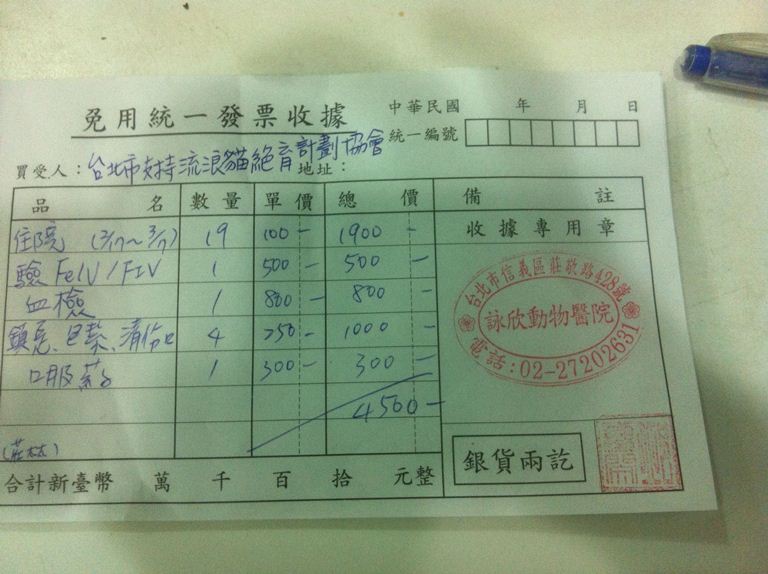 免用統一發票收據
中華民國 年 月 日
統一編號
買受人：台北市支持流浪貓絕育計劃協會 地址：
品名 數量 單價 總價 備註
住院 (2/17~3/7) 19 100- 1900-
收據專用章
驗 FeLV/FIV 1 500- 500-
血檢 1 800- 800-
鎮定、包紮、清傷口 4 250- 1000-
口服藥 1 300- 300-
4500-
台北市信義區莊敬路428號
詠欣動物醫院
電話:02-27202631
合計新臺幣 萬 千 百 拾 元整
銀貨兩訖